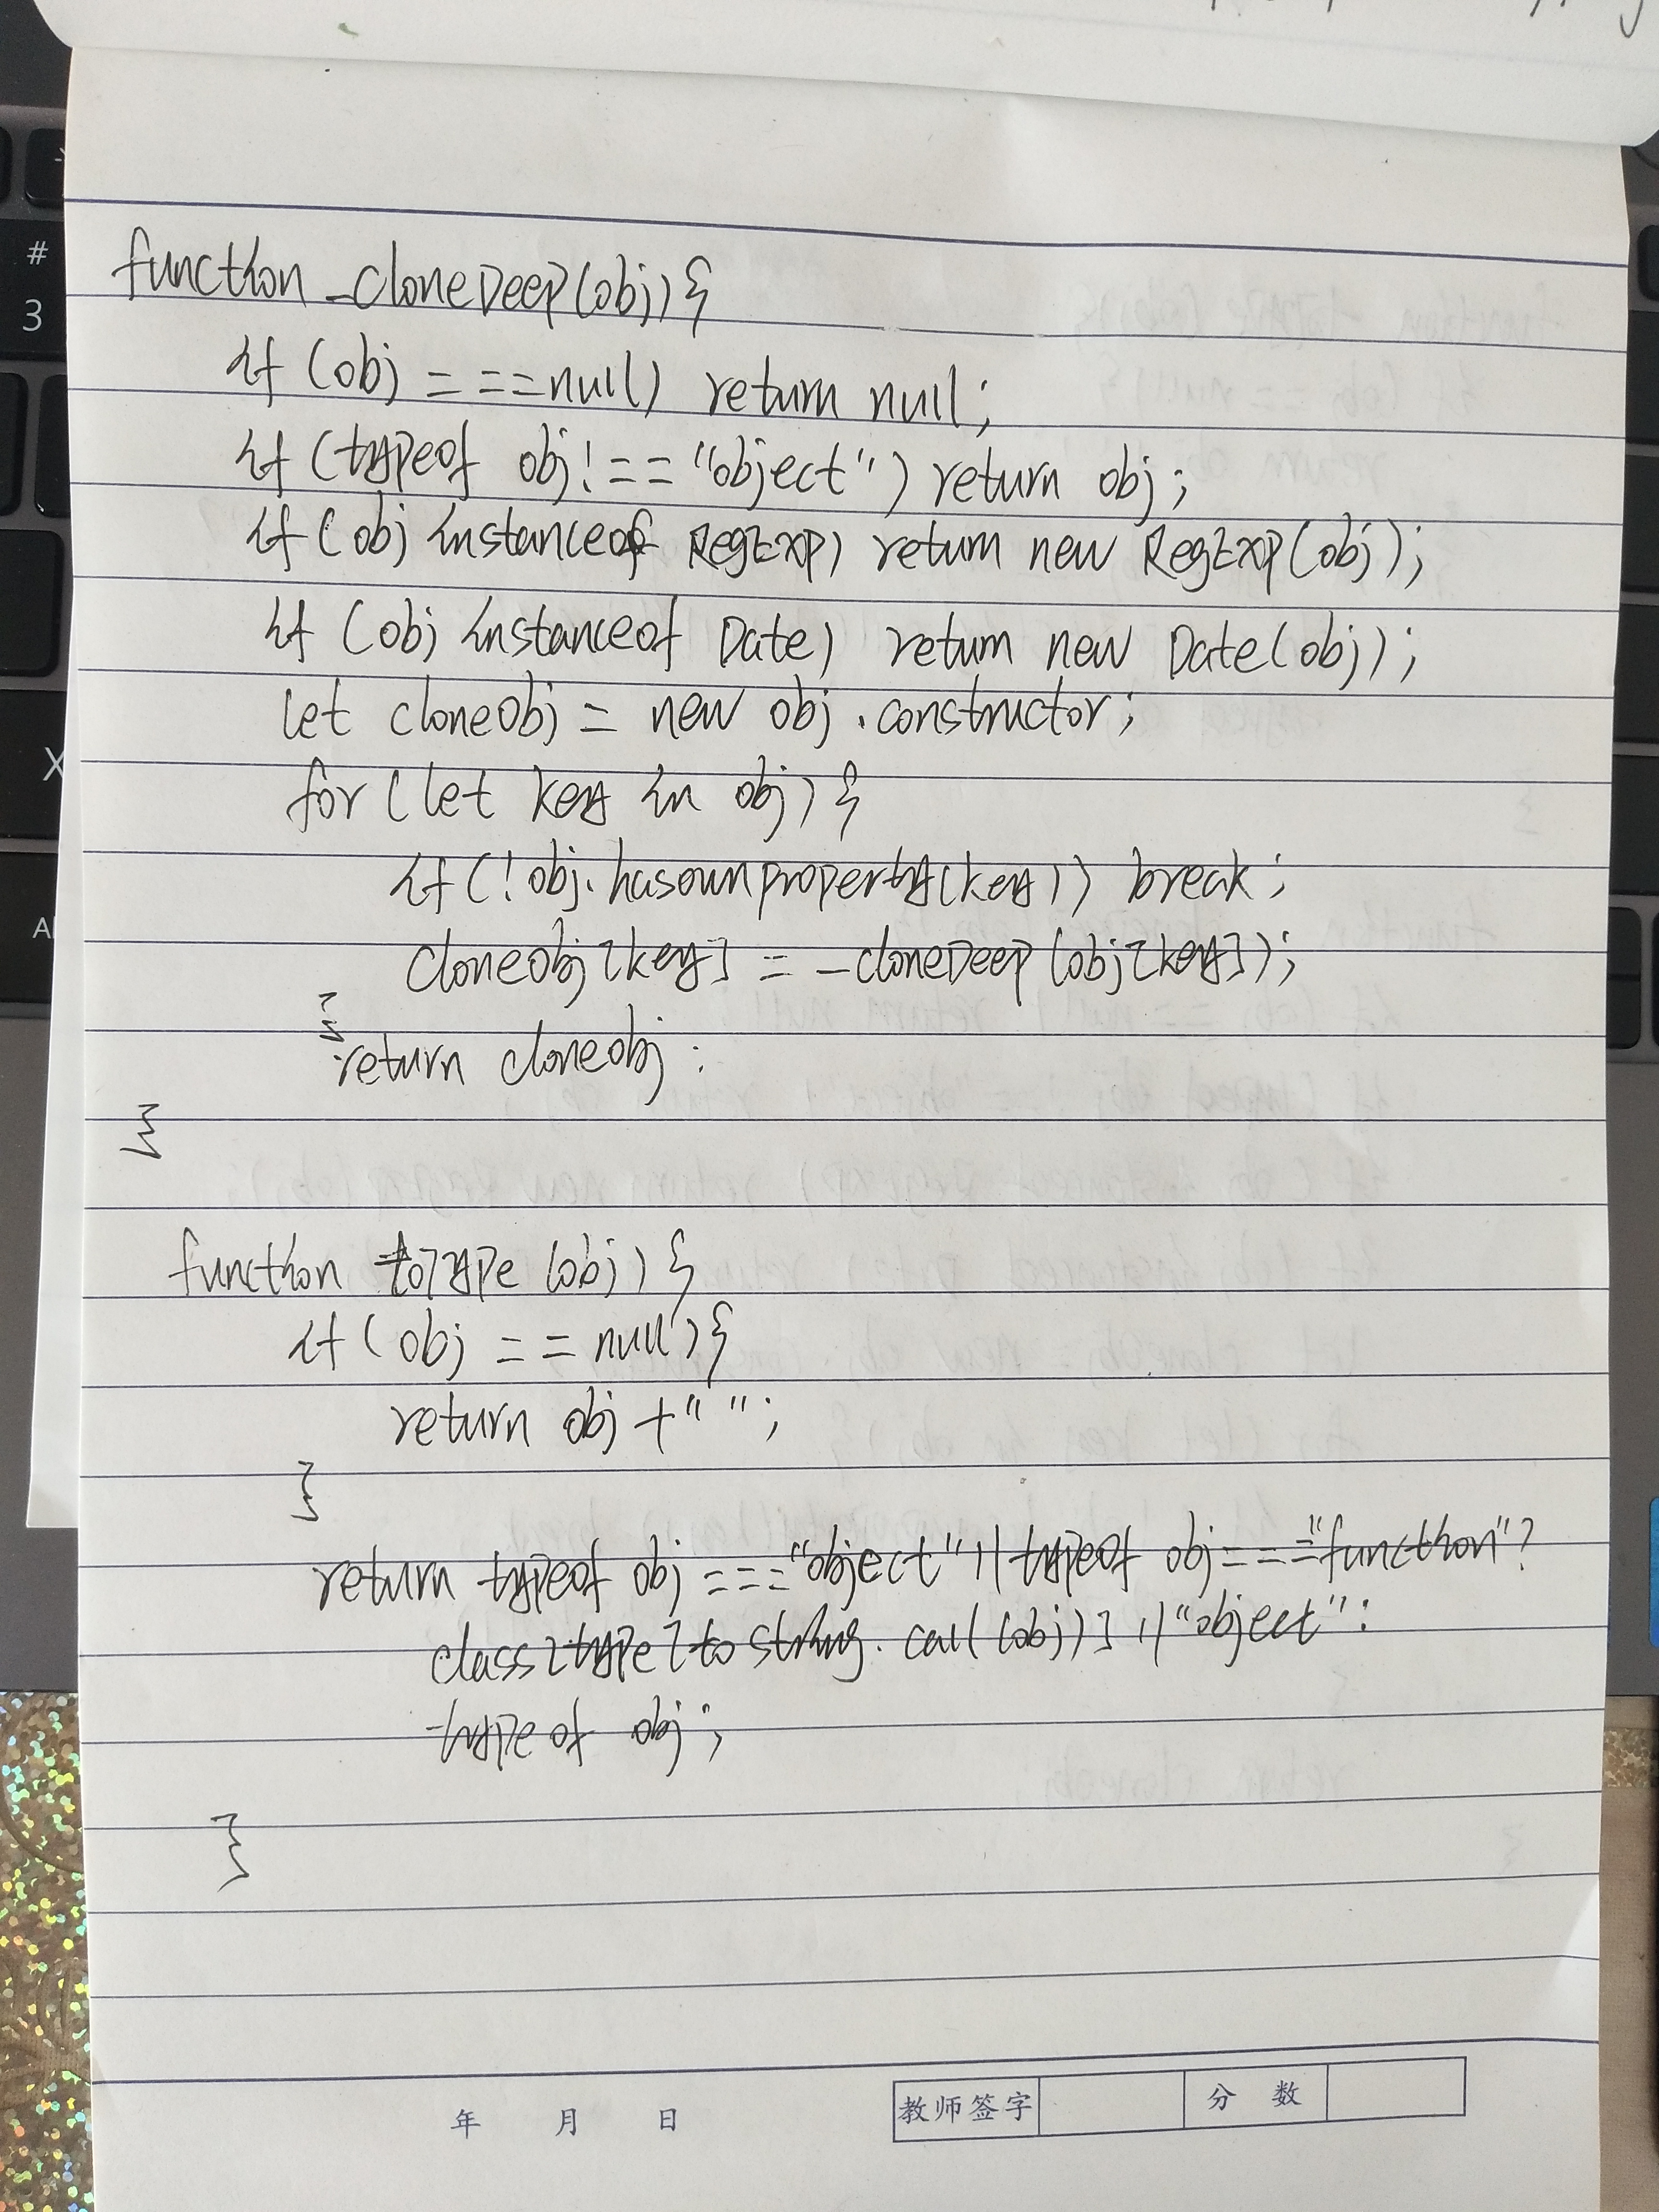 function _cloneDeep(obj){
if (obj ===null) return null;
if (typeof obj !== "object") return obj;
if (obj instanceof RegExp) return new RegExp(obj);
if (obj instanceof Date) return new Date(obj);
let cloneObj = new obj.constructor;
for (let key in obj) {
if (!obj.hasownproperty(key)) break;
cloneObj[key] = _cloneDeep(obj[key]);
}
return cloneobj;
}
function toType (obj) {
if (obj == null) {
return obj + " ";
}
return typeof obj === "object" || typeof obj === "function" ?
class2type[tostring.call(obj)] || "object" :
typeof obj;
}
年 月 日 教师签字 分 数
#
3
X